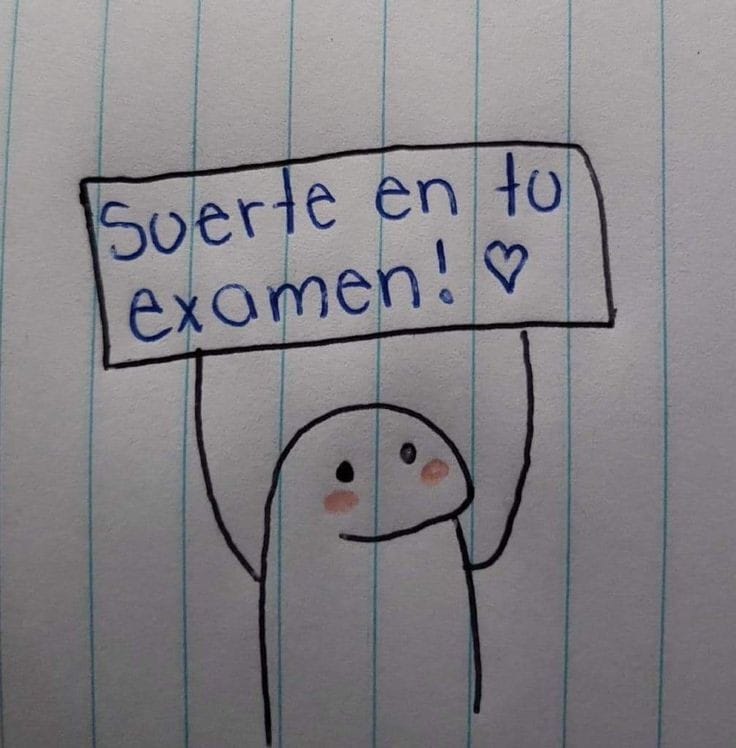 Suerte en tu
examen! ♡